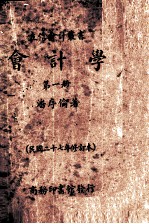 立信會計叢書
會計學
第一冊
潘序倫著
(民國二十七年修訂本)
商務印書館發行